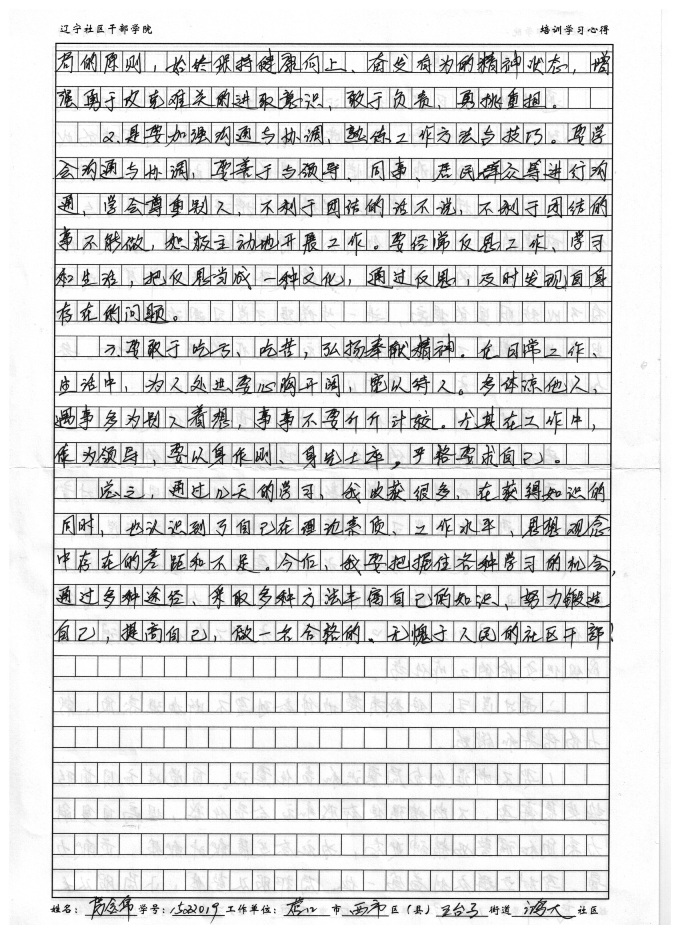 辽宁社区干部学院 培训学习心得
的原则,始终保持健康向上、奋发有为的精神状态,增
强勇于攻克难关的进取意识,敢于负责,勇挑重担。
2.是要加强沟通与协调,熟练工作方法与技巧。要学
会沟通与协调,要善于与领导、同事、居民群众等进行沟
通,学会尊重别人,不利于团结的话不说,不利于团结的
事不能做,积极主动地开展工作。要经常反思工作、学习
和生活,把反思当成一种文化,通过反思,及时发现自身
存在的问题。
3.要敢于吃亏、吃苦,弘扬奉献精神。在日常工作、
生活中,为人处世要心胸开阔,宽以待人。多体凉他人,
遇事多为别人着想,事事不要斤斤计较。尤其在工作中,
作为领导,要以身作则、身先士卒,严格要求自己。
总之,通过几天的学习,我收获很多,在获得知识的
同时,也认识到了自己在理论素质、工作水平、思想观念
中存在的差距和不足。今后,我要把握住各种学习的机会,
通过多种途径、采取多种方法丰富自己的知识,努力锻造
自己,提高自己,做一名合格的、无愧于人民的社区干部!
姓名: 学号:15022019 工作单位:营口 市 西市 区(县) 五台子 街道 社区